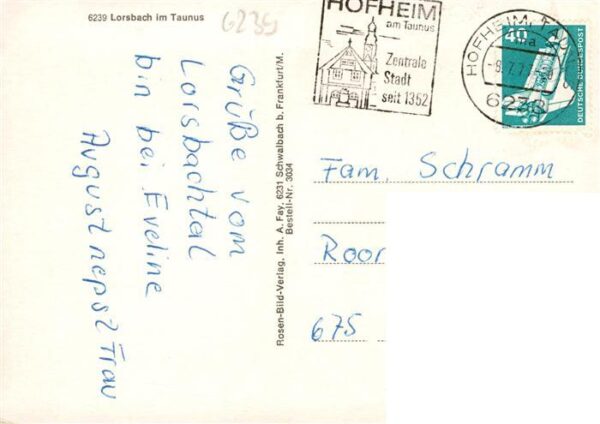 6239 Lorsbach im Taunus
6239
Grüße vom
Lorsbachtal
bin bei Eveline
August nepst Frau
Rosen-Bild-Verlag, Inh. A. Fay, 6231 Schwalbach b. Frankfurt/M.
Bestell-Nr. 3034
HOFHEIM
am Taunus
Zentrale
Stadt
seit 1352
HOFHEIM, TAU
6238
40
DEUTSCHE BUNDESPOST
Fam. Schramm
Roor
675